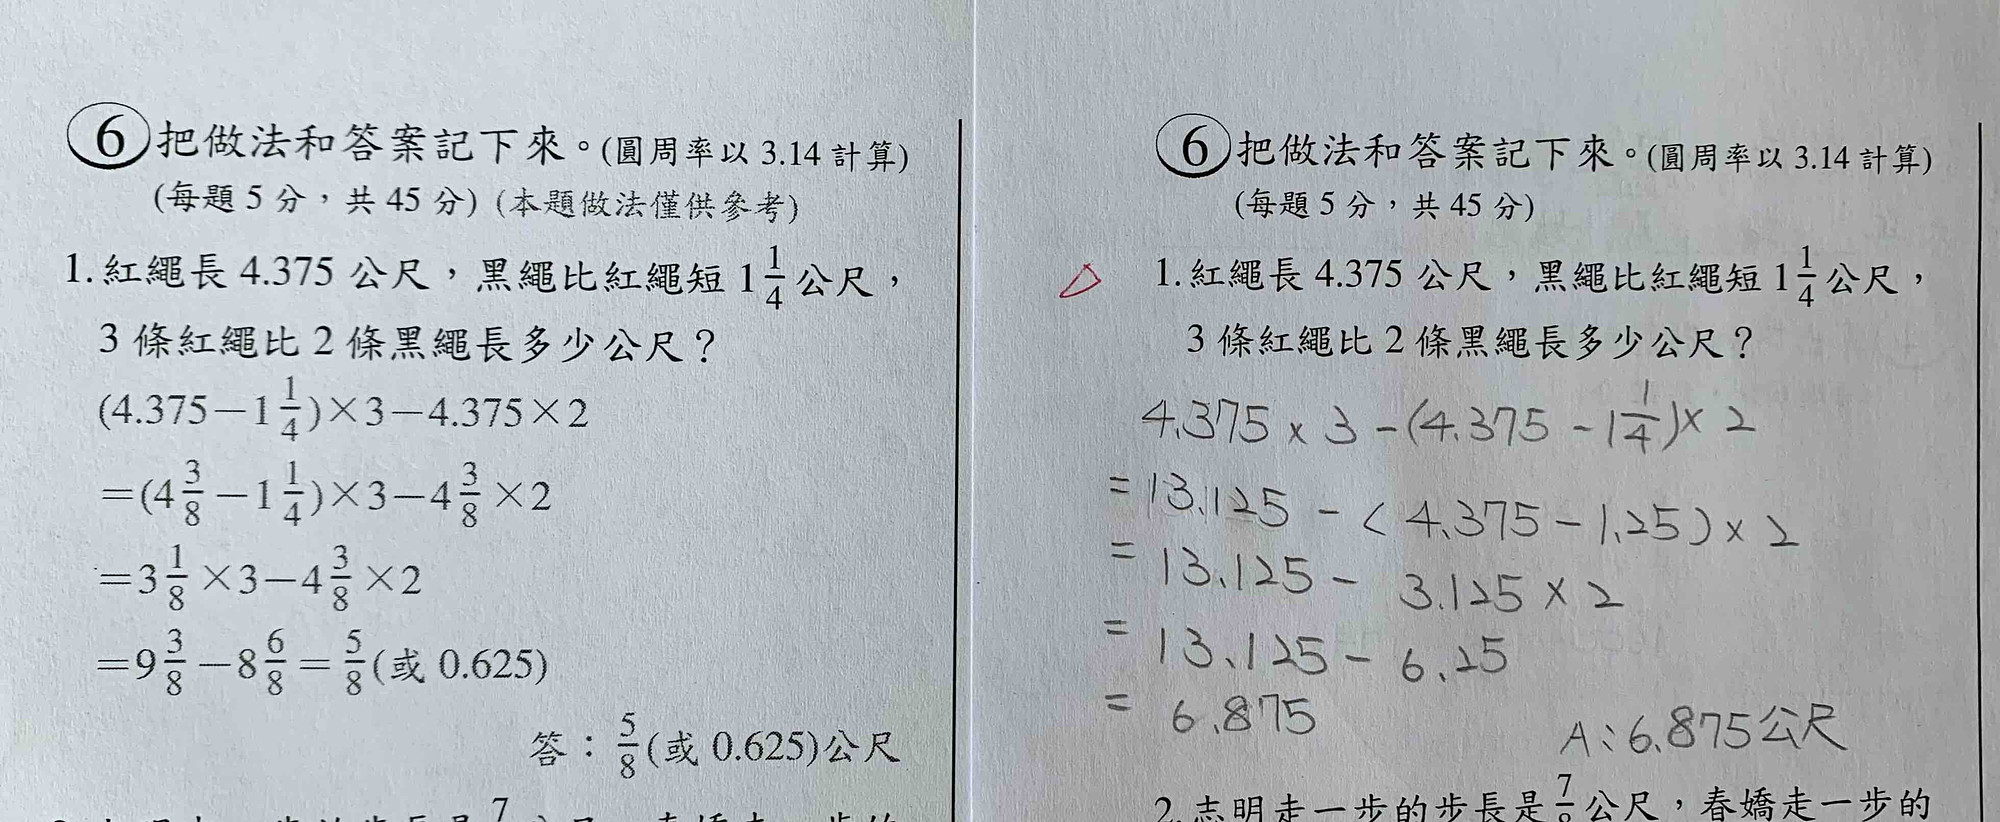 ⑥把做法和答案記下來。(圓周率以 3.14 計算)
(每題 5 分，共 45 分) (本題做法僅供參考)
1. 紅繩長 4.375 公尺，黑繩比紅繩短 1 1/4 公尺，
3 條紅繩比 2 條黑繩長多少公尺？
(4.375－1 1/4)×3－4.375×2
＝(4 3/8－1 1/4)×3－4 3/8×2
＝3 1/8×3－4 3/8×2
＝9 3/8－8 6/8＝5/8(或 0.625)
答：5/8(或 0.625)公尺
⑥把做法和答案記下來。(圓周率以 3.14 計算)
(每題 5 分，共 45 分)
1. 紅繩長 4.375 公尺，黑繩比紅繩短 1 1/4 公尺，
3 條紅繩比 2 條黑繩長多少公尺？
4.375 × 3 - (4.375 - 1 1/4) × 2
= 13.125 - (4.375 - 1.25) × 2
= 13.125 - 3.125 × 2
= 13.125 - 6.25
= 6.875
A：6.875公尺
2. 志明走一步的步長是 7/8 公尺，春嬌走一步的